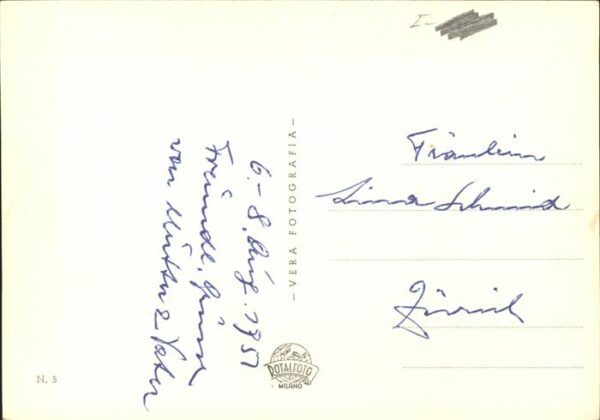 I-
6.-8. Aug. 1951
Freundl. Grüsse
von Mutter & Vater
— VERA FOTOGRAFIA —
Fräulein
Lina Schmid
Zürich
ROTALFOTO
MILANO
N. 5